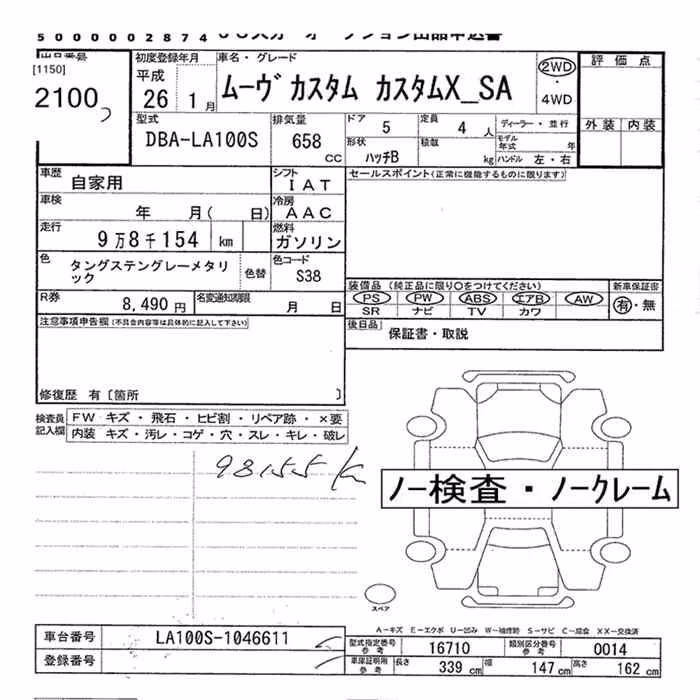 5 0 0 0 0 0 2 8 7 4
[1150]
2100
初度登録年月 車名・グレード
平成
26 1月
ムーヴ カスタム カスタムX_SA
2WD
・
4WD
評価点
外装 内装
型式 DBA-LA100S
排気量 658 CC
ドア 5 定員 4 人
ディーラー・並行
形状 ハッチB 積載 kg
モデル年式 年
ハンドル 左・右
車歴 自家用
シフト IAT
セールスポイント(正常に機能するものに限ります)
車検 年 月( 日)
冷房 AAC
走行 9万8千154 km
燃料 ガソリン
色 タングステングレーメタリ
ック
色替
色コード S38
R券 8,490円
名変通知期限 月 日
装備品 (純正品に限り○をつけてください)
PS PW ABS エアB AW
SR ナビ TV カワ
新車保証書
有・無
後日品 保証書・取説
注意事項申告欄(不具合内容等は具体的に記入して下さい)
修復歴 有〔箇所 〕
検査員記入欄
FW キズ・飛石・ヒビ割・リペア跡・×要
内装 キズ・汚レ・コゲ・穴・スレ・キレ・破レ
98155 K
ノー検査・ノークレーム
スペア
A-キズ E-エクボ U-凹み W-補修跡 S-サビ C-腐食 XX-交換済
車台番号 LA100S-1046611
登録番号
型式指定番号参考 16710
類別区分番号参考 0014
車庫証明用参考 長さ 339 cm 幅 147 cm 高さ 162 cm